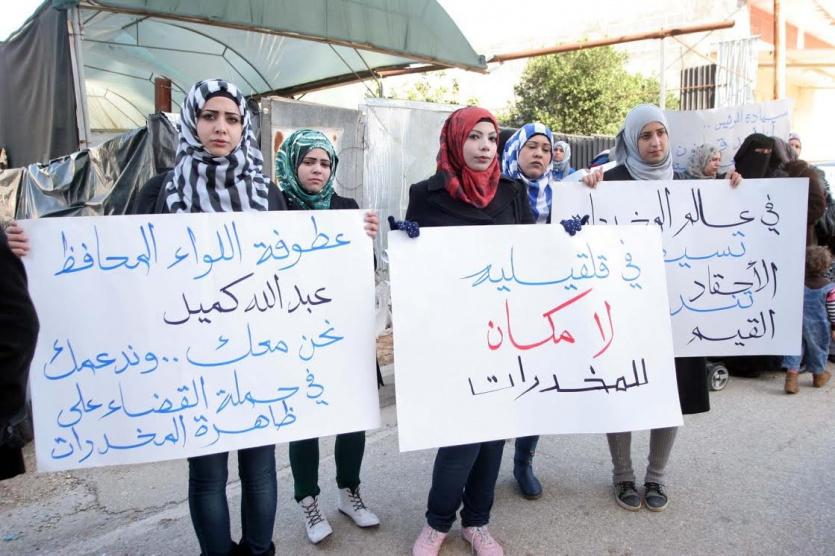 عطوفة اللواء المحافظ
عبد الله كميل
نحن معك .. وندعمك
في حملة القضاء على
ظاهرة المخدرات
في قلقيليه
لا مكان
للمخدرات
في عالم المخدرات
تسي
الأحقاد
القيم